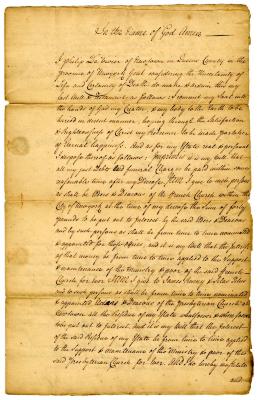 In the Name of God Amen
I philip De in Queens County in the
province of Newyork Considering the uncertainty of
Life and Certainty of Death do make & ordain this my
last Will & Testament as follows I commend my Soul into
the hands of God my Creator & my body to the Earth to be
buried in decent manner, hoping through the Satisfaction
& Righteousness of Christ my Redeemer to be made partaker
of Eternal happiness. And as for my Estate real & personal
I dispose thereof as follows: Imprimis it is my Will that
all my just Debts and funeral Charges be paid within some
reasonable time after my Decease. Item I give to such persons
as shall be & Deacons of the French Church within the
City of Newyork at the time of my decease the Sum of forty
pounds to be put out to Interest by the said & Deacons
and by such persons as shall be from time to time nominated
& appointed for those offices, and it is my Will that the Interest
of that money be from time to time applied to the Support
& maintenance of the Ministry & poor of the said french
Church for ever. Item I give to James &
and such persons as shall be from time to time nominated
& appointed & Deacons of the presbyterian Church
all the Residue of my Estate whatsoever & wheresoever
to be put out to Interest. And it is my Will that the Interest
of the said Residue of my Estate be from time to time applied
to the Support & maintenance of the Ministry & poor of the
said presbyterian Church for ever. And I do hereby
and